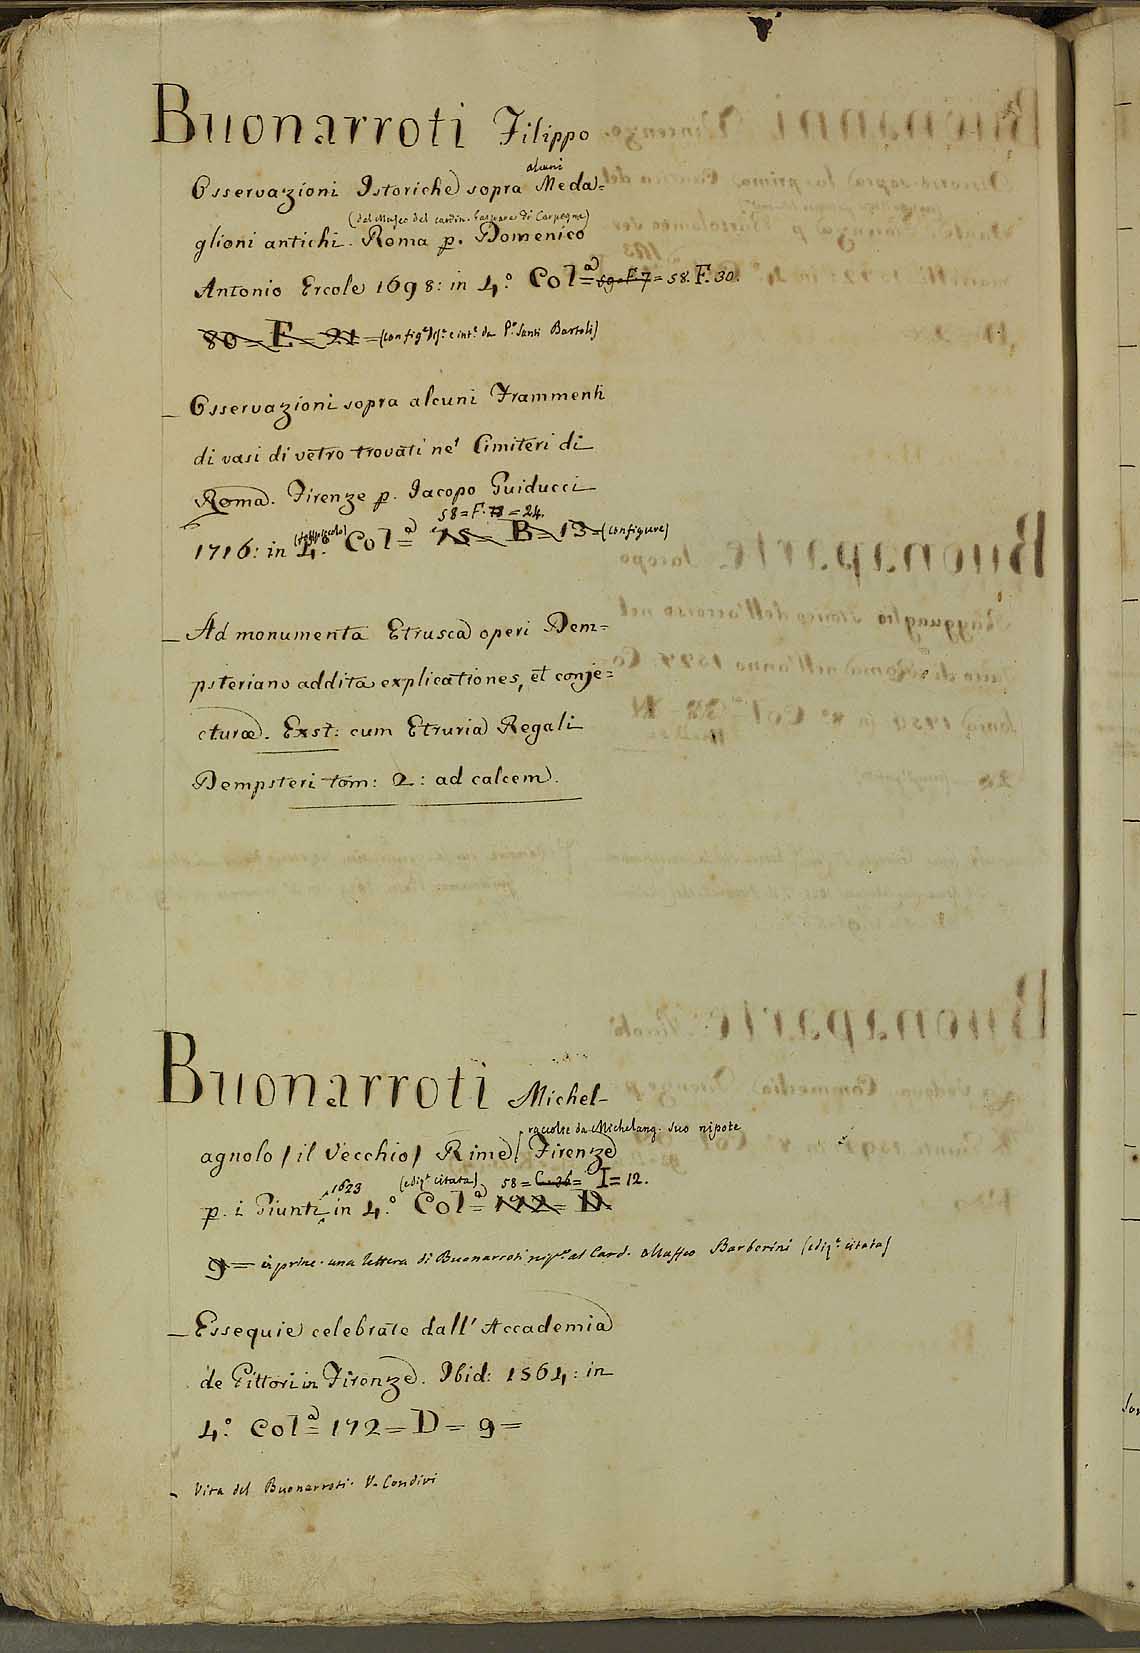 Buonarroti Filippo
alcuni
Osservazioni Istoriche sopra Meda=
(del Museo del cardin. Gaspare di Carpegna)
glioni antichi. Roma p. Domenico
Antonio Ercole 1698: in 4.° Col.a= 59=F.7= 58. F. 30.
80=E=21= (con fig.e e int.e da P.o Santi Bartoli)
_ Osservazioni sopra alcuni Frammenti
di vasi di vetro trovati ne' Cimiteri di
Roma. Firenze p. Jacopo Guiducci
58=F. =24.
1716: in 4.° Col.a= 75=B=13= (con figure)
_ Ad monumenta Etrusca operi Dem=
psteriano addita explicationes, et conje=
cturæ. Exst: cum Etruria Regali
Dempsteri tom: 2: ad calcem.
Buonarroti Michel-
raccolte da Michelang. suo nipote
agnolo / il Vecchio / Rime / Firenze
1623 (ediz.e citata) 58= C.36= I=12.
p. i Giunti in 4.° Col.a= 172= D.
9= in princ. una lettera di Buonarroti al Card. Maffeo Barberini (ediz.e citata)
_ Essequie celebrate dall' Accademia
de Pittori in Firenze. Ibid: 1564: in
4.° Col.a= 172=D=9=
_ Vita del Buonarroti. V. Condivi